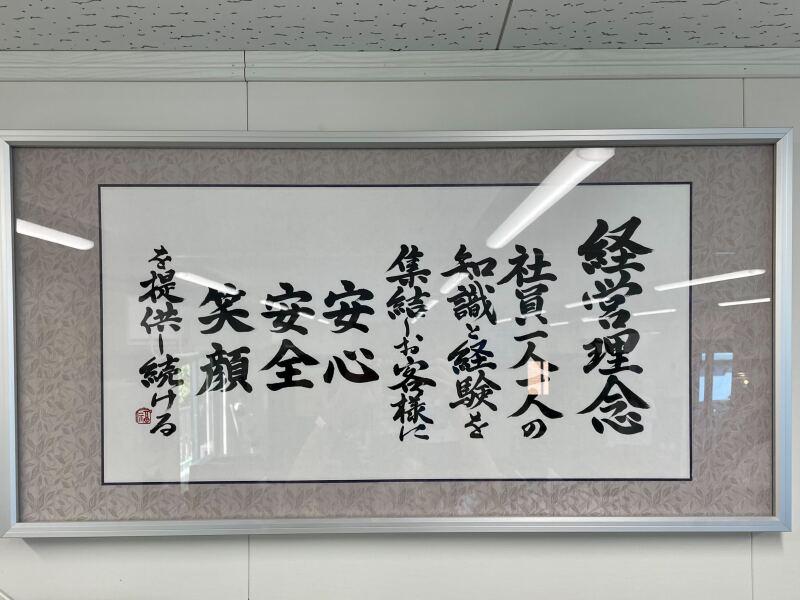 経営理念
社員一人一人の
知識と経験を
集結しお客様に
安心
安全
笑顔
を提供し続ける